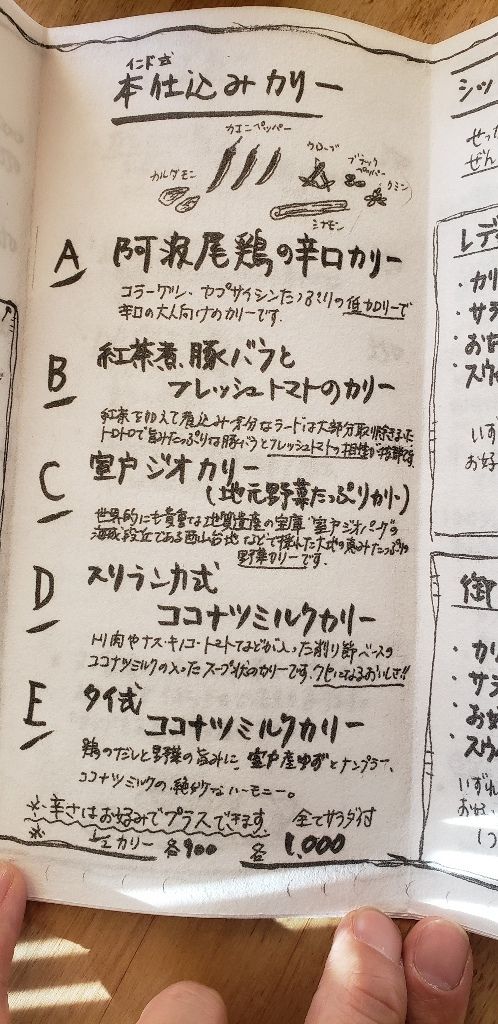 インド式
本仕込みカリー
カエンペッパー
カルダモン
クローブ
ブラック
ペッパー
クミン
シナモン
A 阿波尾鶏の辛口カリー
コラーゲン、カプサイシンたっぷりの低カロリーで
辛口の大人向けのカリーです。
B 紅茶煮、豚バラと
フレッシュトマトのカリー
紅茶を加えて煮込み余分なラードは大部分取り除きました
トロトロで旨みたっぷりな豚バラとフレッシュトマトの相性が抜群です。
C 室戸ジオカリー
(地元野菜たっぷりカリー)
世界的にも貴重な地質遺産の宝庫“室戸ジオパーク”の
海成段丘である西山台地などで採れた大地の恵みたっぷりの
野菜カリーです。
D スリランカ式
ココナツミルクカリー
トリ肉やナス・キノコ・トマトなどが入った削り節ベースの
ココナツミルクの入ったスープ状のカリーです。クセになるおいしさ!!
E タイ式
ココナツミルクカリー
鶏のだしと野菜の旨みに、室戸産ゆずとナンプラー、
ココナツミルクの、絶妙なハーモニー。
※辛さはお好みでプラスできます 全てサラダ付
※ カリー 各900 各1,000
シッ
せっ
ぜん
レデ
・カリ
・サラ
・お
・スウ
いず
お好
御
・カリ
・サラ
・お好
・スウ
いずれ
お好
(つ